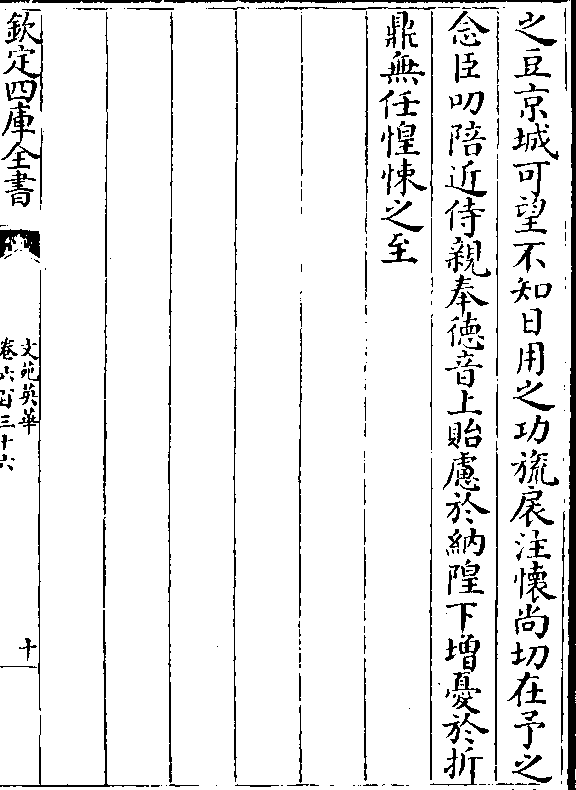 之豆京城可望不知日用之功旒扆注懷尚切在予之
念臣叨陪近侍親奉徳音上貽慮於納隍下增憂於折
鼎無任惶悚之至
欽定四庫全書
文苑英華
卷六百三十六
十